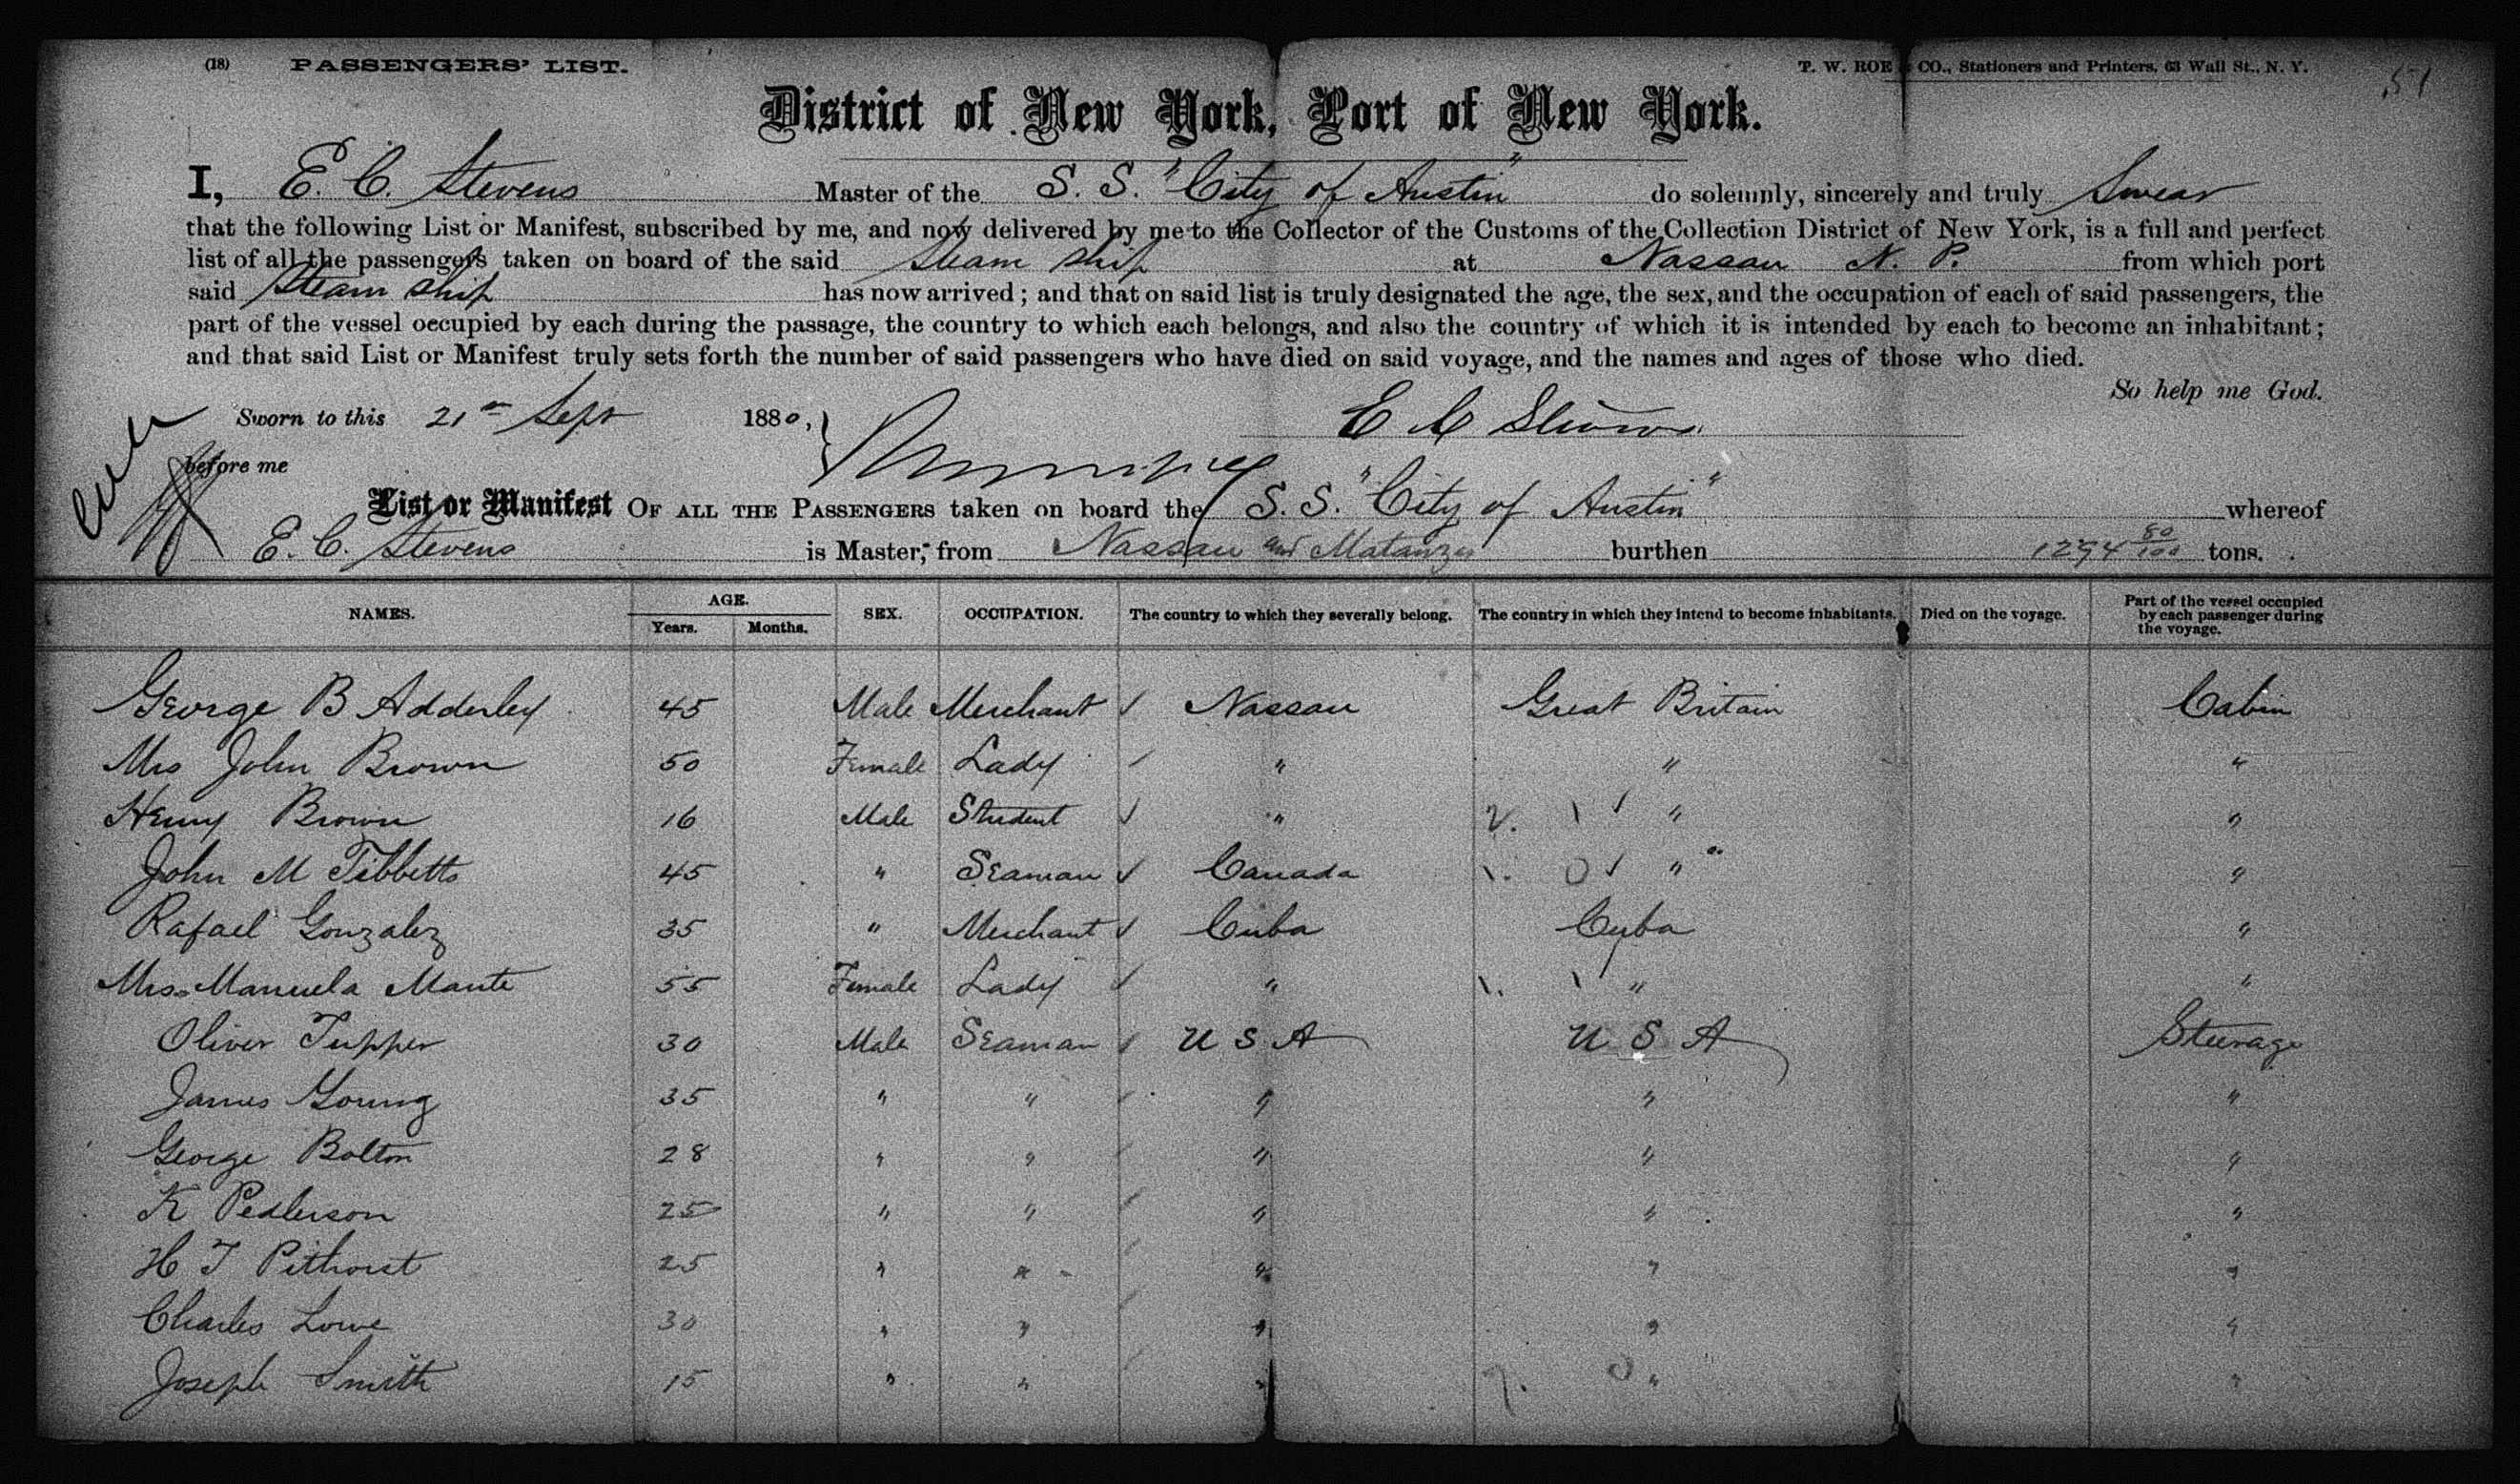 (18) PASSENGERS' LIST. T. W. ROE & CO., Stationers and Printers, 63 Wall St., N. Y. 51
District of New York, Port of New York.
I, E. C. Stevens Master of the S. S. "City of Austin" do solemnly, sincerely and truly Swear
that the following List or Manifest, subscribed by me, and now delivered by me to the Collector of the Customs of the Collection District of New York, is a full and perfect
list of all the passengers taken on board of the said Steam Ship at Nassau N. P. from which port
said Steam Ship has now arrived; and that on said list is truly designated the age, the sex, and the occupation of each of said passengers, the
part of the vessel occupied by each during the passage, the country to which each belongs, and also the country of which it is intended by each to become an inhabitant;
and that said List or Manifest truly sets forth the number of said passengers who have died on said voyage, and the names and ages of those who died.
So help me God.
Sworn to this 21st Sept 1880, E C Stevens
before me
List or Manifest OF ALL THE PASSENGERS taken on board the S. S. "City of Austin" whereof
E. C. Stevens is Master, from Nassau and Matanzas burthen 1294 80/100 tons.
NAMES. AGE. Years. Months. SEX. OCCUPATION. The country to which they severally belong. The country in which they intend to become inhabitants. Died on the voyage. Part of the vessel occupied by each passenger during the voyage.
George B Adderley 45 Male Merchant ✓ Nassau Great Britain Cabin
Mrs John Brown 50 Female Lady ✓ " " "
Henry Brown 16 Male Student ✓ " 2. \ ✓ " "
John M Tibbetts 45 " Seaman ✓ Canada 1. 0 ✓ " "
Rafael Gonzalez 35 " Merchant ✓ Cuba Cuba "
Mrs. Manuela Mante 55 Female Lady ✓ " 1. \ " "
Oliver Tupper 30 Male Seaman ✓ U S A U S A Steerage
James Young 35 " " ✓ " " "
George Bolton 28 " " ✓ " " "
K Pedlerson 25 " " ✓ " " "
H T Pithorst 25 " " ✓ " " "
Charles Lowe 30 " " ✓ " " "
Joseph Smith 15 " " ✓ " 7. 0 " "